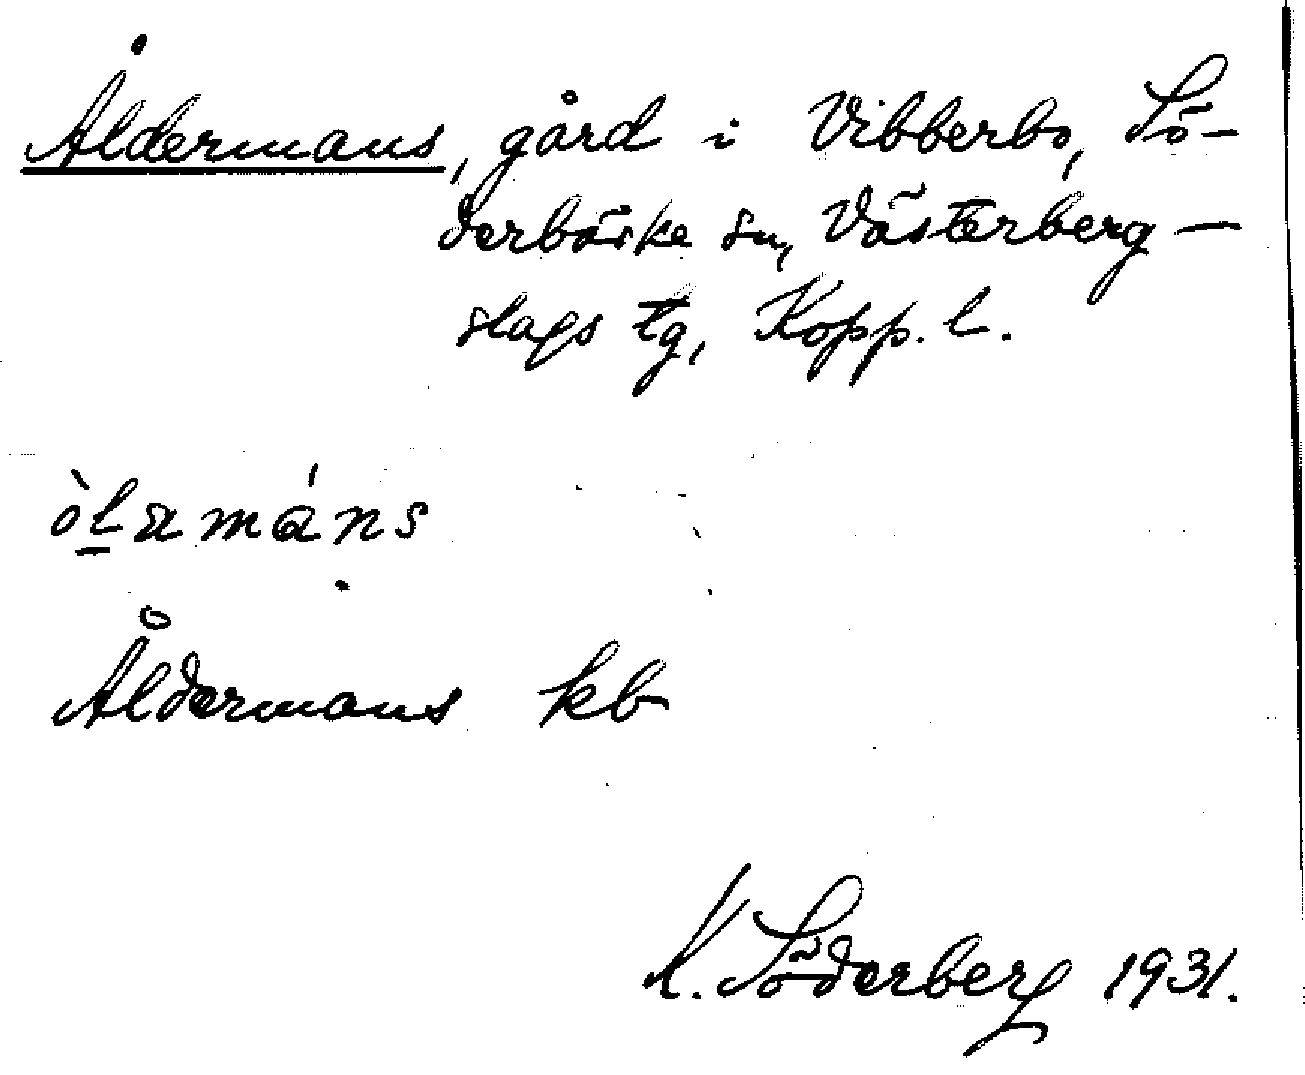 Åldermans, gård i Vibberbo, Sö-
derbärke sn, Västerberg-
slags tg, Kopp. l.
òlamáns
Åldermans kb
K. Söderberg 1931.